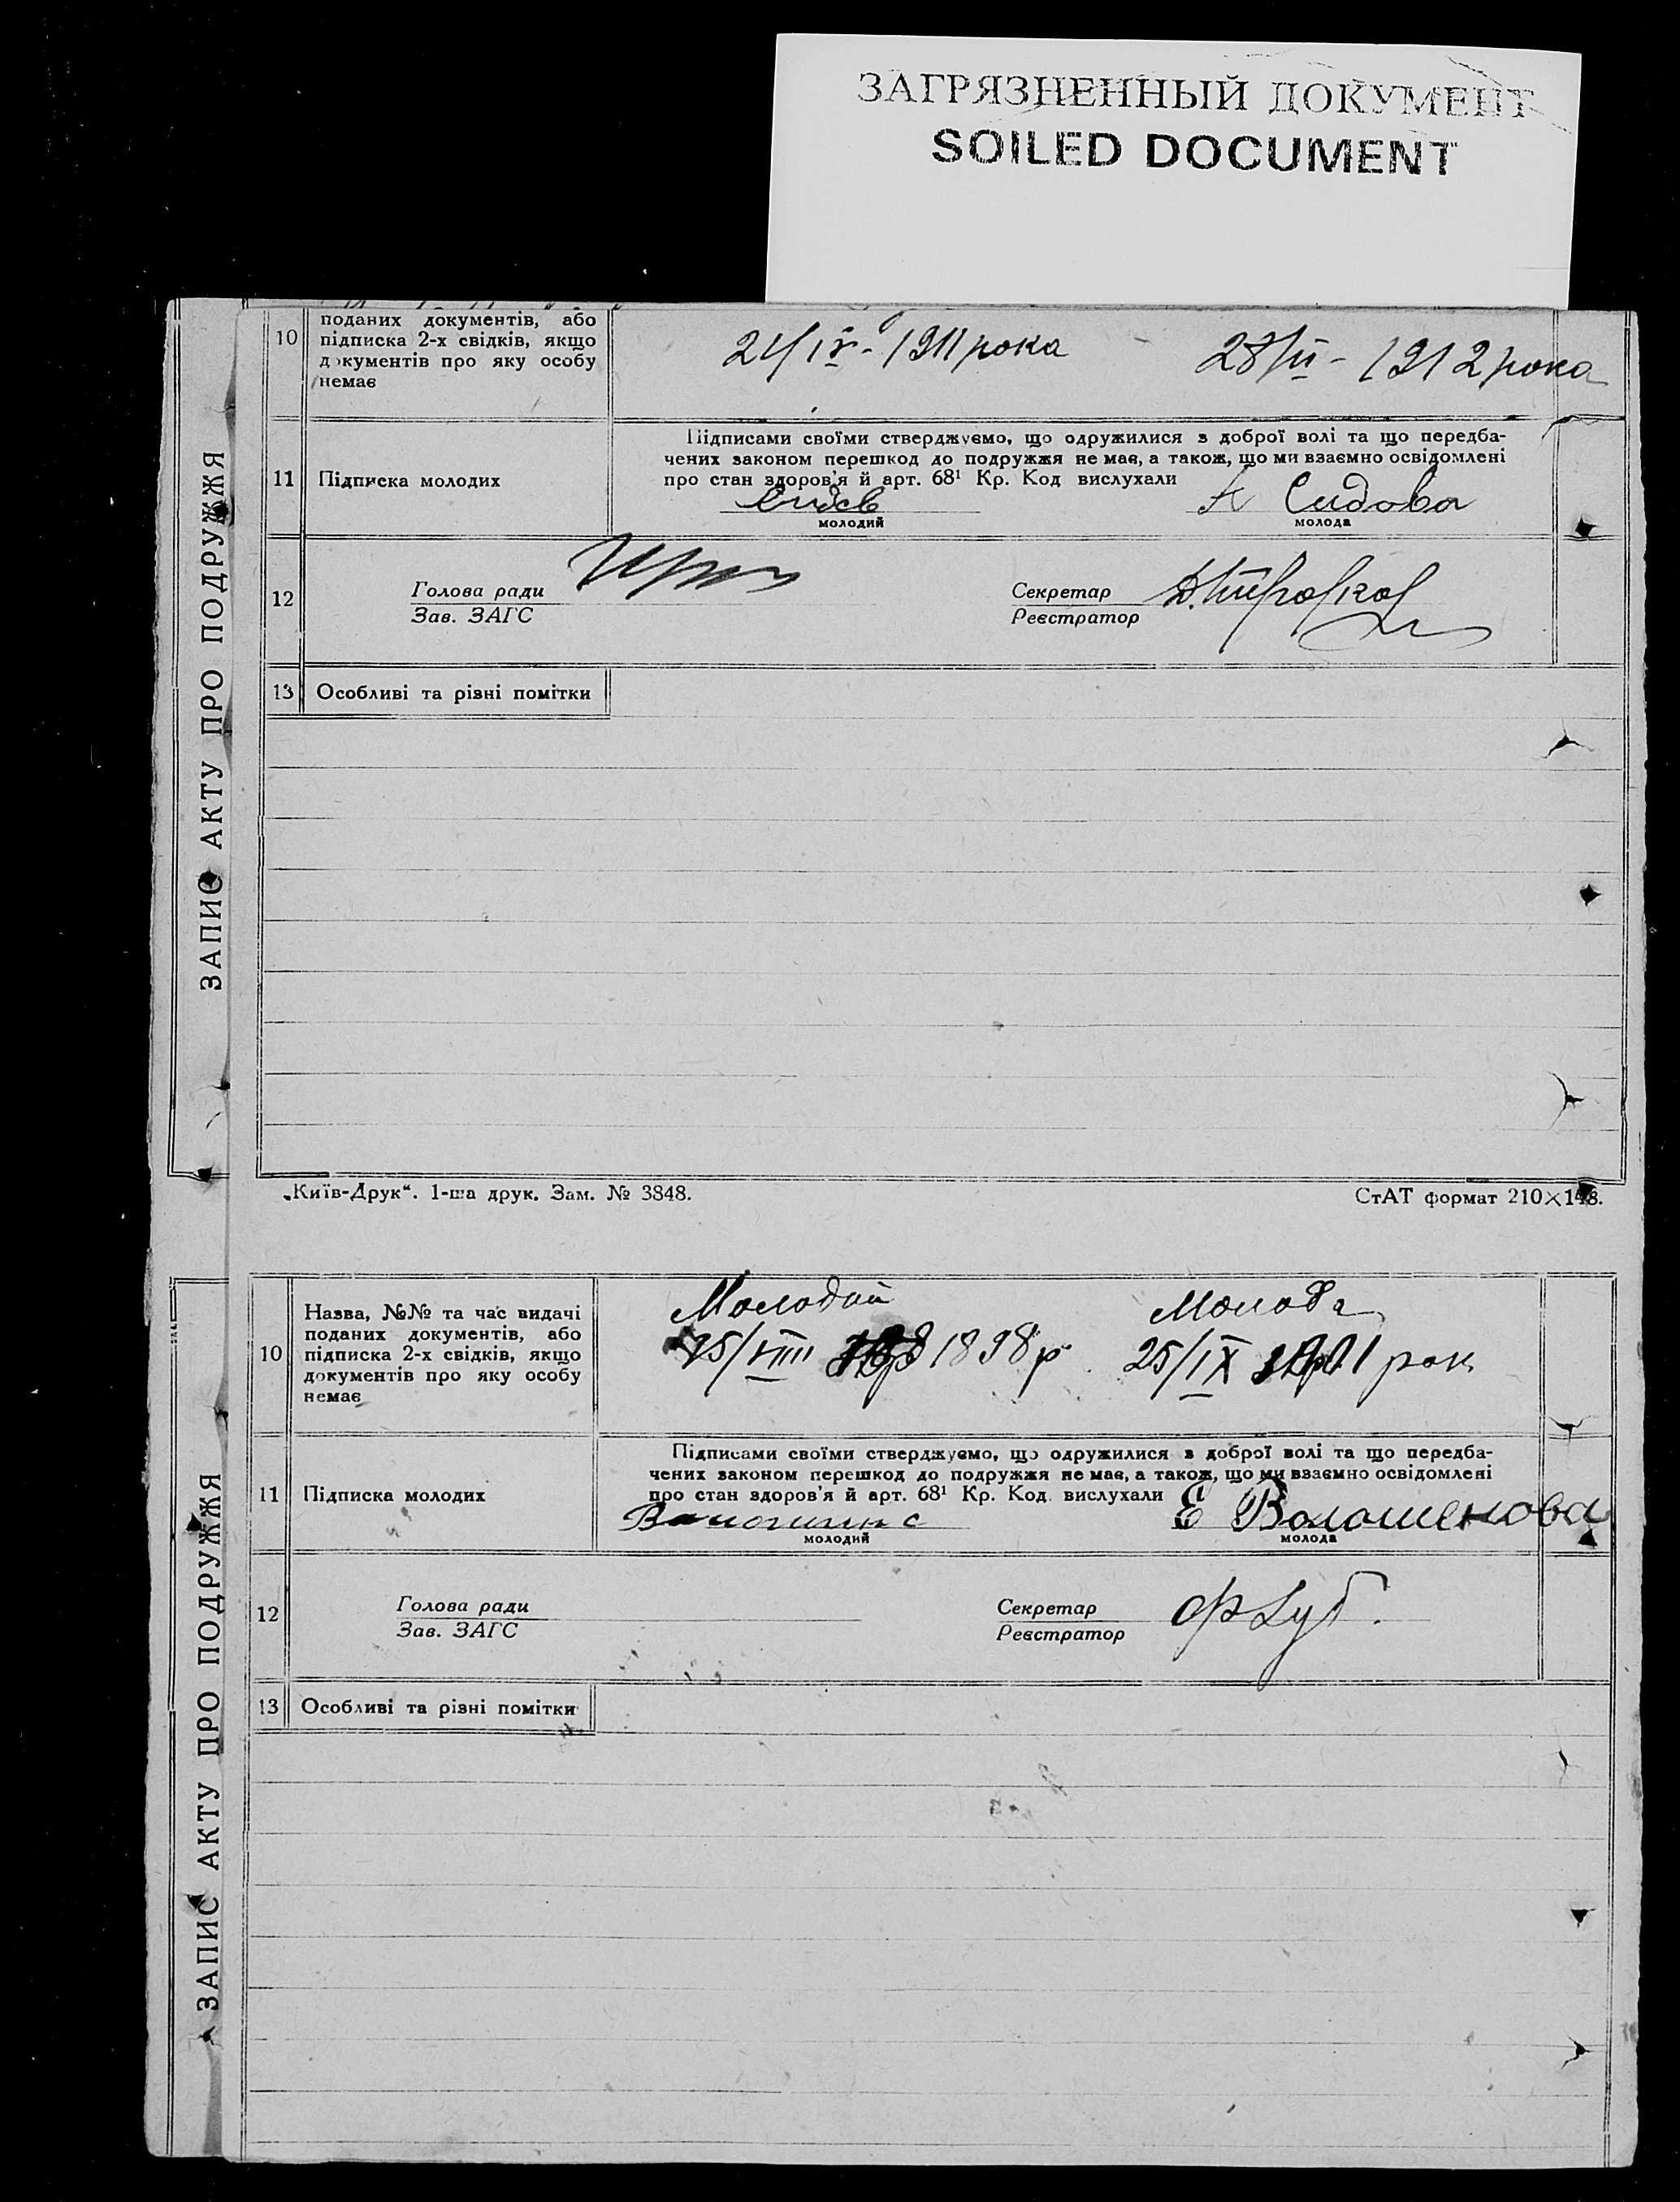 ЗАГРЯЗНЕННЫЙ ДОКУМЕНТ
SOILED DOCUMENT
ЗАПИС АКТУ ПРО ПОДРУЖЖЯ
10
поданих документів, або
підписка 2-х свідків, якщо
документів про яку особу
немає
1911 рока
1912 рока
11
Підписка молодих
Підписами своїми стверджуємо, що одружилися з доброї волі та що передба-
чених законом перешкод до подружжя не має, а також, що ми взаємно освідомлені
про стан здоров'я й арт. 68¹ Кр. Код вислухали
А Сидова
молодий
молода
12
Голова ради
Зав. ЗАГС
Секретар
Реєстратор
13
Особливі та різні помітки
„Київ-Друк“. 1-ша друк. Зам. № 3848.
СтАТ формат 210×148.
ЗАПИС АКТУ ПРО ПОДРУЖЖЯ
10
Назва, №№ та час видачі
поданих документів, або
підписка 2-х свідків, якщо
документів про яку особу
немає
Молодий
Молода
15/VIII 1898 р
25/IX рок
11
Підписка молодих
Підписами своїми стверджуємо, що одружилися з доброї волі та що передба-
чених законом перешкод до подружжя не має, а також, що ми взаємно освідомлені
про стан здоров'я й арт. 68¹ Кр. Код вислухали
Е Волошенова
молодий
молода
12
Голова ради
Зав. ЗАГС
Секретар
Реєстратор
13
Особливі та різні помітки